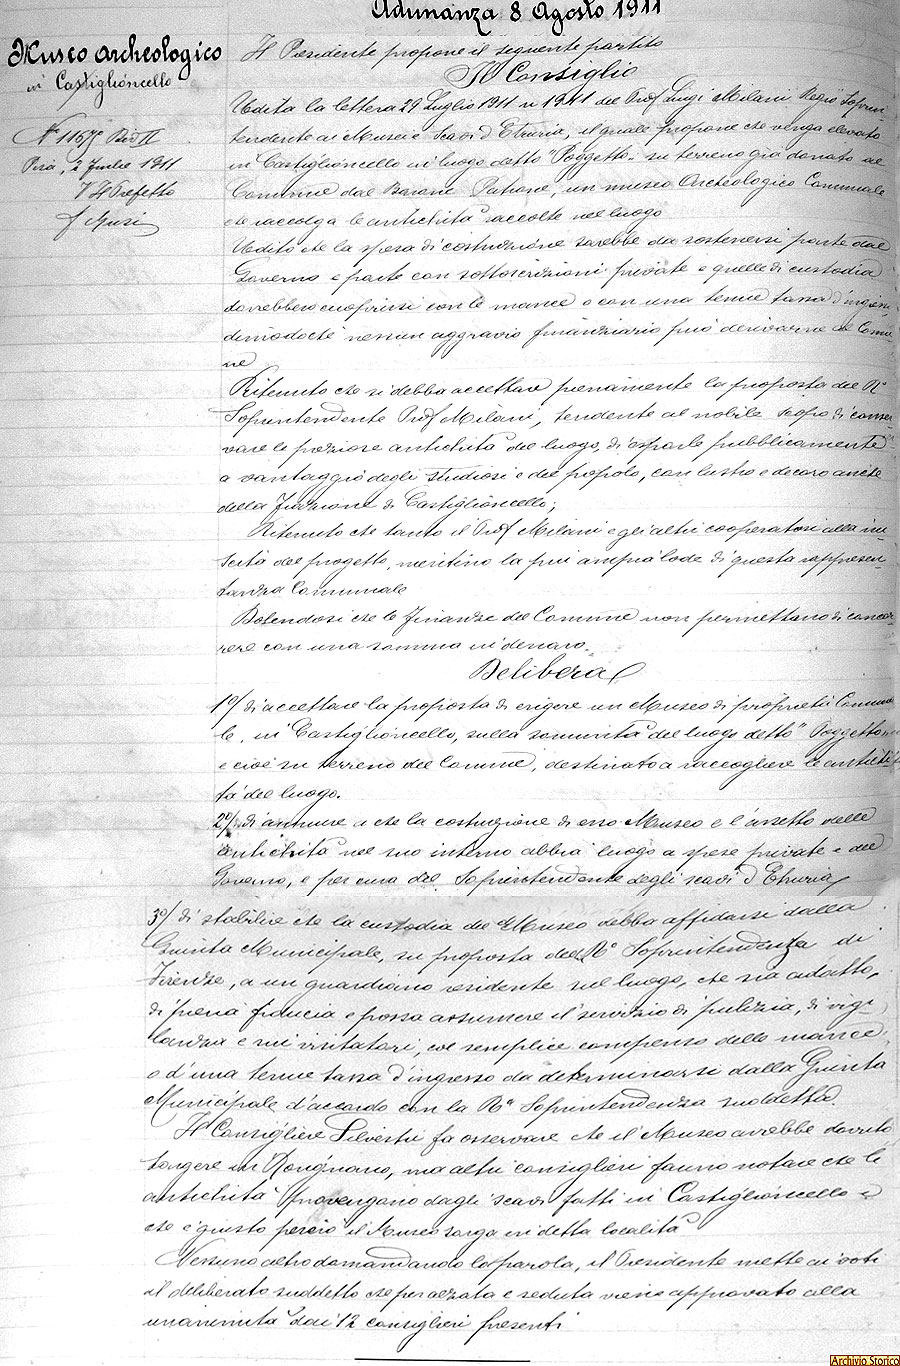 Adunanza 8 Agosto 1911
Museo Archeologico
in Castiglioncello
Pisa, 2
Il Prefetto
Il Presidente propone il seguente partito
Il Consiglio
Udita la lettera 29 Luglio 1911 n 1941 del Prof Luigi Milani Regio Soprin-
tendente ai Musei e Scavi d'Etruria, il quale propone che venga elevato
in Castiglioncello in luogo detto "Poggetto" su terreno già donato al
Comune dal Barone Patrone, un museo Archeologico Comunale
che raccolga le antichità raccolte nel luogo
Udito che la spesa di costruzione sarebbe da sostenersi parte dal
Governo e parte con sottoscrizioni private e quelle di custodia
dovrebbero cuoprirsi con le mance o con una tenue tassa d'ingresso
dimodoché nessun aggravio finanziario può derivarne al Comu-
ne
Ritenuto che si debba accettare pienamente la proposta del R°
Soprintendente Prof Milani, tendente al nobile scopo di conser-
vare le preziose antichità del luogo, di esporle pubblicamente
a vantaggio degli studiosi e del popolo, con lustro e decoro anche
della Frazione di Castiglioncello;
Ritenuto che tanto il Prof Milani e gli altri cooperatori alla riu-
scita del progetto, meritino la più ampia lode di questa rappresen-
tanza Comunale
Dolendosi che le Finanze del Comune non permettano di concor-
rere con una somma in denaro.
Delibera
1°/ di accettare la proposta di erigere un Museo di proprietà Comuna-
le, in Castiglioncello, sulla sommità del luogo detto "Poggetto"
e cioè su terreno del Comune, destinato a raccogliere le antichi-
tà del luogo.
2°/ di annuire a che la costruzione di esso Museo e l'assetto delle
antichità nel suo interno abbia luogo a spese private e del
Governo, e per cura del Soprintendente degli scavi d'Etruria
3°/ di stabilire che la custodia del Museo debba affidarsi dalla
Giunta Municipale, su proposta della R° Soprintendenza di
Firenze, a un guardiano residente sul luogo, che sia adatto,
di piena fiducia e possa assumere il servizio di pulizia, di vigi-
lanza e sui visitatori, col semplice compenso delle mance
o d'una tenue tassa d'ingresso da determinarsi dalla Giunta
Municipale d'accordo con la Rª Soprintendenza suddetta.
Il Consigliere Silvestri fa osservare che il Museo avrebbe dovuto
sorgere in Rosignano, ma altri consiglieri fanno notare che le
antichità provengano dagli scavi fatti in Castiglioncello e
che è giusto perciò il Museo sorga in detta località
Nessuno altro domandando la parola, il Presidente mette ai voti
il deliberato suddetto che per alzata e seduta viene approvato alla
unanimità dai 12 consiglieri presenti
Archivio Storico